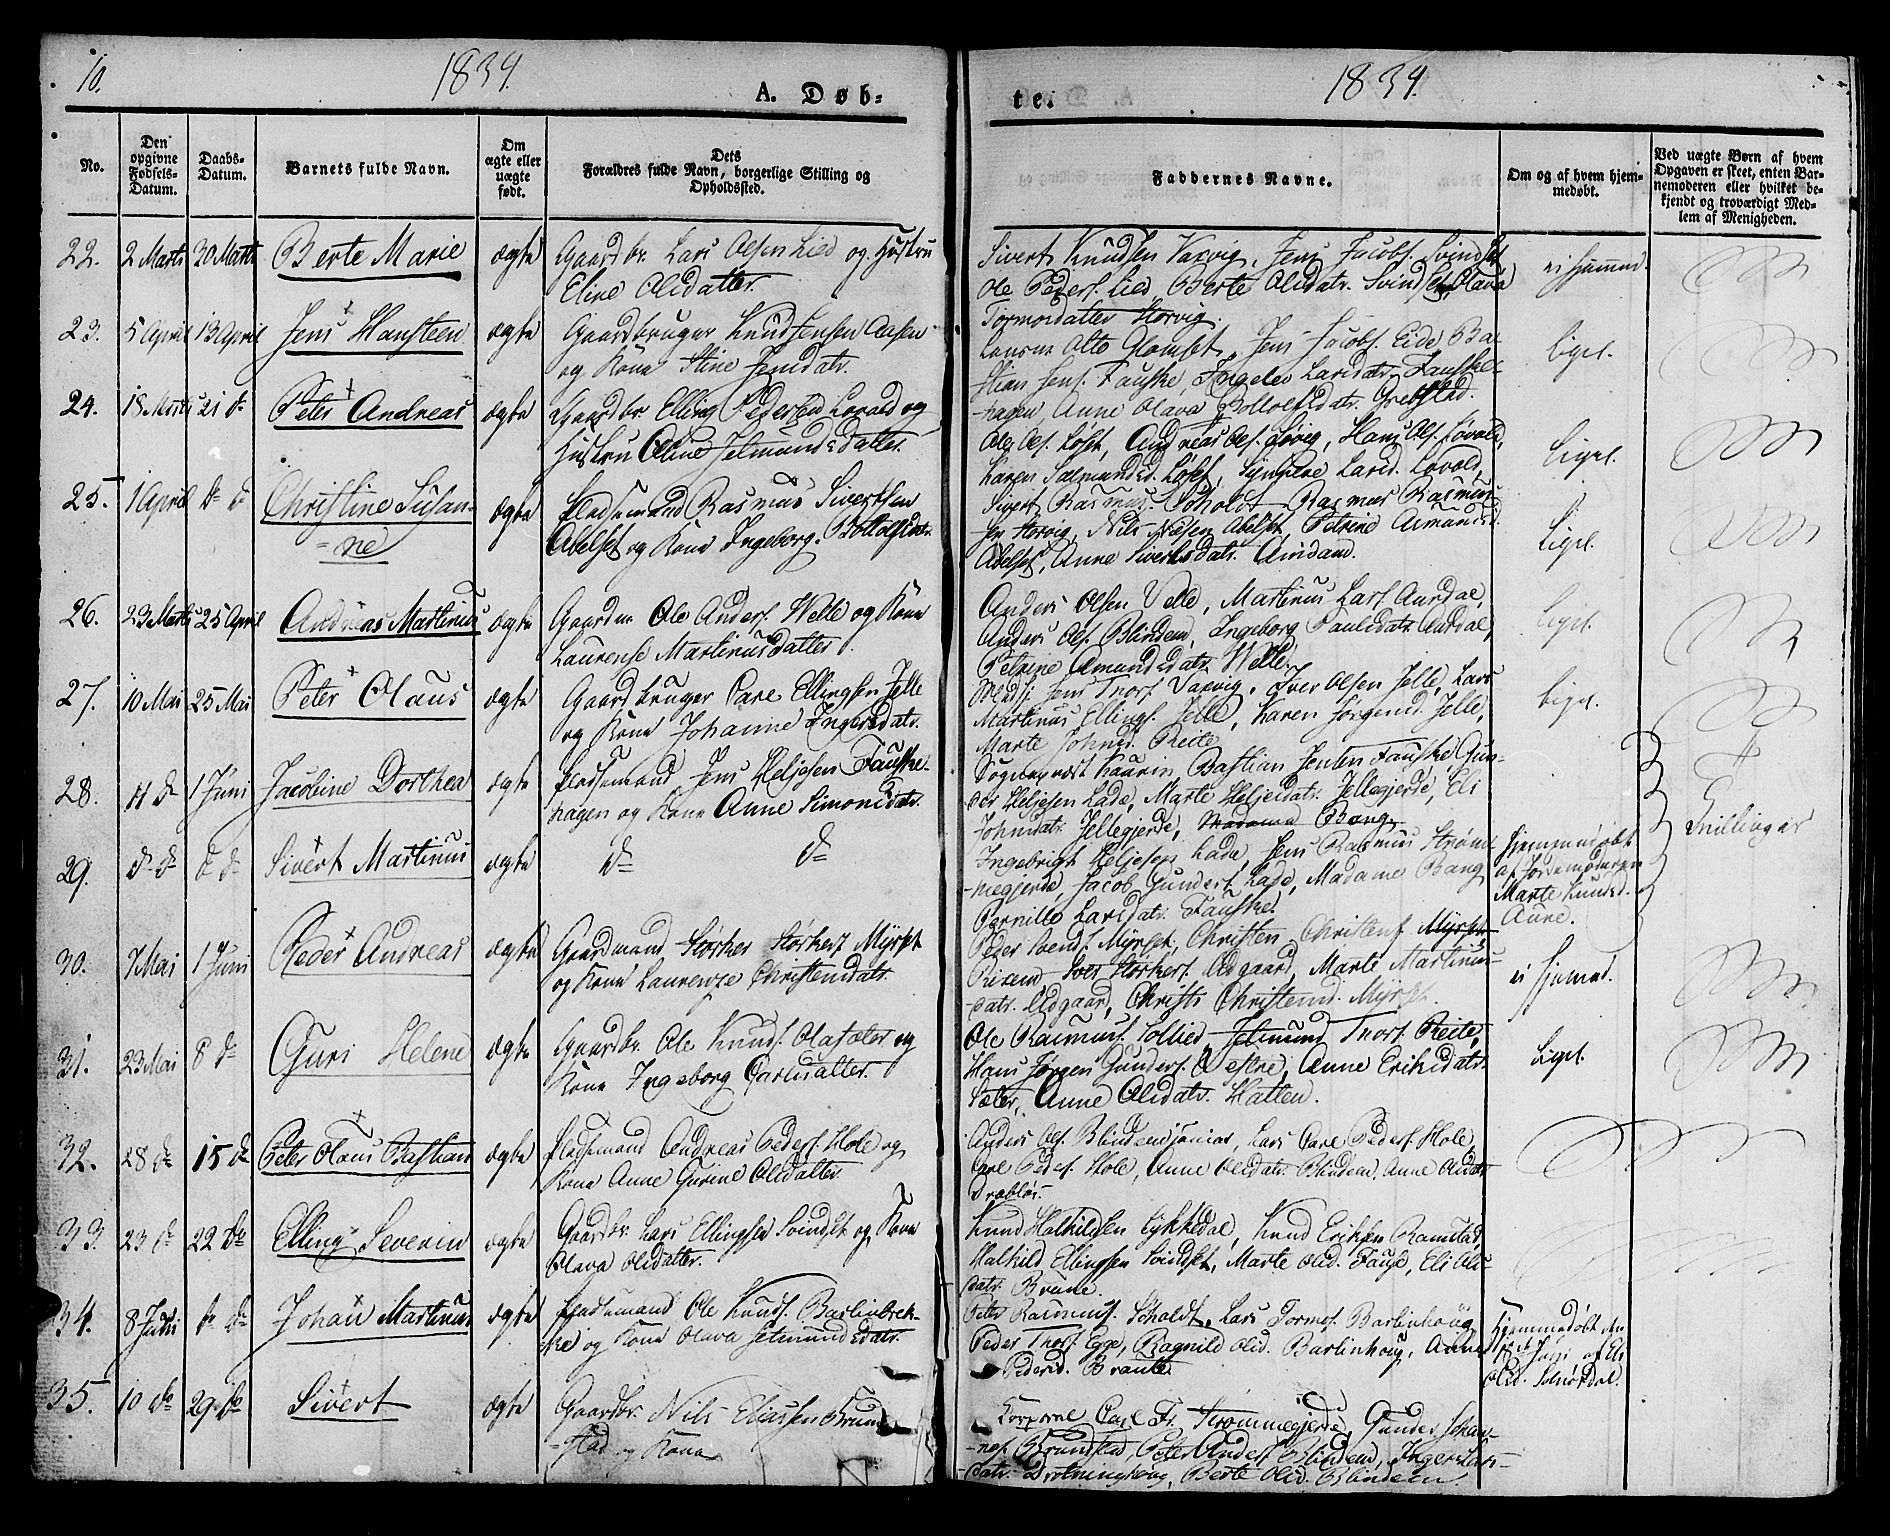 10.
1834.
A. Døb-
te.
1834.
No.
Den opgivne Fødsels-Datum.
Daabs-Datum.
Barnets fulde Navn.
Om ægte eller uægte født.
Dets Forældres fulde Navn, borgerlige Stilling og Opholdssted.
Faddernes Navne.
Om og af hvem hjemmedøbt.
Ved uægte Børn af hvem Opgaven er skeet, enten Barnemoderen eller hvilket bekjendt og troværdigt Medlem af Menigheden.
22. 2 Marts 30 Marts Berte Marie ægte Gaardbr. Lars Olsen Lied og Hustru
Eline Olsdatter.
Sivert Knudsen Vaxvig, Jens Jacobs. Svindset
Ole Peders. Lied Berte Olsdatr. Svindset, Olava
Tormodatter Horvig.
ei hjemmed.
23. 5 April 13 April Jens Hansteen ægte Gaardbruger Knud Jensen Aasen
og Kone Stine Jensdatr.
Glomset, Jens Jacobs. Eide Ba-
stian Jens. Fauske, Larsdatr. Fauske-
hagen Anne Olava Grebstad.
ligel.
24. 18 Marts 21 d- Peter Andreas ægte Gaardbr. Elling Pedersen Lovold og
Hustru Oline Jetmundsdatter.
Ole Ols. Andreas Ols. Hans Ols. Lovold,
Karen Larsd. Lovold,
ligel.
25. 1 April d- d- Christine Susan-
=ne ægte Pladsemand Rasmus Sivertsen
Abelset og Kone Ingeborg Bottolfsdatr.
Sivert Rasmus. Scholdt Rasmus Rasmus-
sen Horvig, Nils Nilsen Abelset, Petrine Asmundsd.
Abelset, Anne Sivertsdatr.
ligel.
26. 23 Marts 25 April Andreas Martinus ægte Gaardm. Ole Anders. Welle og Kone
Laurense Martinusdatter.
Anders Olsen Velle, Martinus Lars. Aurdal,
Anders Ols. Blindem, Ingeborg Paulsdatr. Aurdal,
Petrine Amundsdatr. Welle.
ligel.
27. 10 Mai 25 Mai Peter Olaus ægte Gaardbruger Carl Ellingsen Jelle
og Kone Johanne
Jens Thors. Vaxvig, Iver Olsen Jelle, Lars
Martinus Ellings. Jelle, Karen Jørgensd. Jelle,
Marte Johnsd. Reite
ligel.
28. 11 d- 1 Juni Jacobine Dorthea ægte Pladsemand Jens Heljesen Fauske-
hagen og Kone Anne Simonsdatr.
Sogneprest Kaurin, Bastian Jensen Fauske Gun-
der Heljesen Lade, Marte Heljesdatr. Jellegjerde, Eli
Johnsdatr. Jellegjerde, Madame Bang
Tvillinger
29. d- d- d- d- Sivert Martinus ægte d- d-
Ingebrigt Heljesen Lade, Jens Rasmus Strøm-
megjerde, Jacob Gunders. Lade, Madame Bang
Pernille Larsdatr. Fauske.
Hjemmedøbt
af Jordemoderen
Marte Knudsd.
Aure.
30. 7 Mai 1 Juni Peder Andreas ægte Gaardmand Størker Størkers. Myrset
og Kone Laurentze Christensdatr.
Peder Svends. Myrset, Christen Christens. Myrset,
Iver Størkers. Ødgaard, Marte Martinus-
datr. Ødgaard, Christi Christensd. Myrset.
ei hjemmed.
31. 23 Mai 8 d- Guri Helene ægte Gaardbr. Ole Knuds. og
Kone Ingeborg Carlsdatter.
Ole Rasmus. Sollied, Jetmund Thors. Reite,
Hans Jørgen Gunders. Vestre, Anne Eriksdatr.
Sæter, Anne Olsdatr. Hatten.
ligel.
32. 28 d- 15 d- Peter Olaus Bastian ægte Pladsemand Andreas Peders. Hole og
Kone Anne Gurine Olsdatter.
Anders Ols. Blindem junior, Lars Carl Peders. Hole,
Carl Peders. Hole, Anne Olsdatr. Blindem, Anne Olsdatr.
Drabløs.
33. 23 d- 22 de Elling Severin ægte Gaardbr. Lars Ellingsen Svindset og Kone
Olava Olsdatter.
Knud Halkildsen Lykkedal, Knud Eriksen Ramstad,
Halkild Ellingsen Svindset, Marte Olsd. Fauske, Eli Ols-
datr. Brune.
34. 8 Juni d- d- Johan Martinus ægte Pladsemand Ole Knuds. Barlinbrek-
ke og Kone Olava Jetmundsdatr.
Peter Rasmus. Scholdt, Lars Tormos. Barlinhoug
Peder Thors. Egge, Ragnild Olsd. Barlinhoug, Anne
Pedersd. Brante
Hjemmedøbt den
Juni af Eli
Olsd.
35. 10 de 29 de Sivert ægte Gaardbr. Nils Eliassen Brun-
-stad og Kone
Korporal Carl Fr. Strømmegjerde, Gunder Johan-
nes. Brunstad, Peter Anders. Blindem, Inger Lars-
datr. Drotninghoug, Berte Olsd. Blindem.